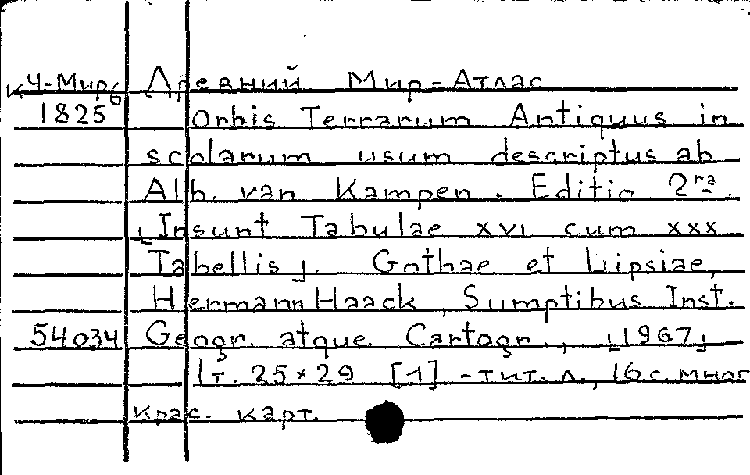 К4-Мирб Древний Мир-Атлас
1825 Orbis Terrarum Antiquus in
scolarum usum descriptus ab
Alb. van Kampen. Editio 2ra.
[Insunt Tabulae XVI cum XXX
Tabellis]. Gothae et Lipsiae,
Hermann Haack, Sumptibus Inst.
54034 Geogr. atque Cartogr., [1967]
1т. 25×29 [1] -тит. л., 16 с. мног
крас. карт.